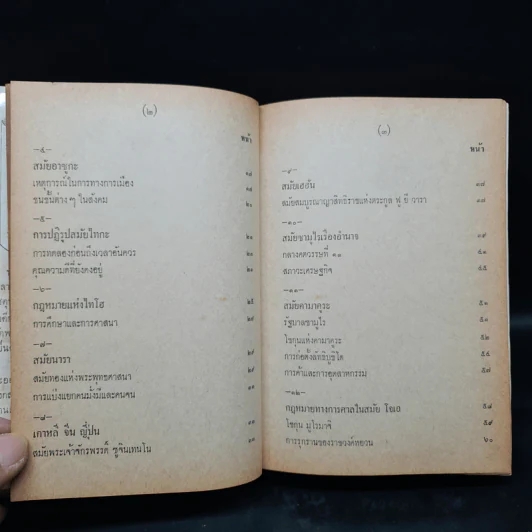 (๒)
หน้า
—๔—
สมัยอาซูกะ ๑๗
เหตุการณ์ในการทางการเมือง ๑๗
ชนชั้นต่าง ๆ ในสังคม ๒๐
—๕—
การปฏิรูปสมัยไทกะ ๒๐
การทดลองก่อนถึงเวลาอันควร ๒๐
คุณความดีที่ยังคงอยู่ ๒๐
—๖—
กฎหมายแห่งไทโฮ ๒๕
การศึกษาและการศาสนา ๒๗
—๗—
สมัยนารา ๒๙
สมัยทองแห่งพระพุทธศาสนา
การแบ่งแยกคนมั่งมีและคนจน
—๘—
เกาหลี จีน ญี่ปุ่น
สมัยพระเจ้าจักรพรรดิ์ ซูจินเทนโน
(๓)
หน้า
—๙—
สมัยเฮอัน ๓๗
สมัยสมบูรณาญาสิทธิราชแห่งตระกูล ฟู ยี วารา ๓๗
—๑๐—
สมัยซามูไรเรืองอำนาจ
กลางศตวรรษที่ ๑๑
สภาวะเศรษฐกิจ ๔๕
—๑๑—
สมัยคามาคูระ ๕๒
รัฐบาลซามูไร ๕๓
โชกุนแห่งคามาคูระ
การก่อตั้งลัทธิบูชิโด ๕๕
การค้าและการอุตสาหกรรม ๕๗
—๑๒—
กฎหมายทางการศาลในสมัย โฮเฮ ๕๘
โชกุน มูโรมาจิ ๕๙
การรุกรานของราชวงศ์หยวน ๖๐